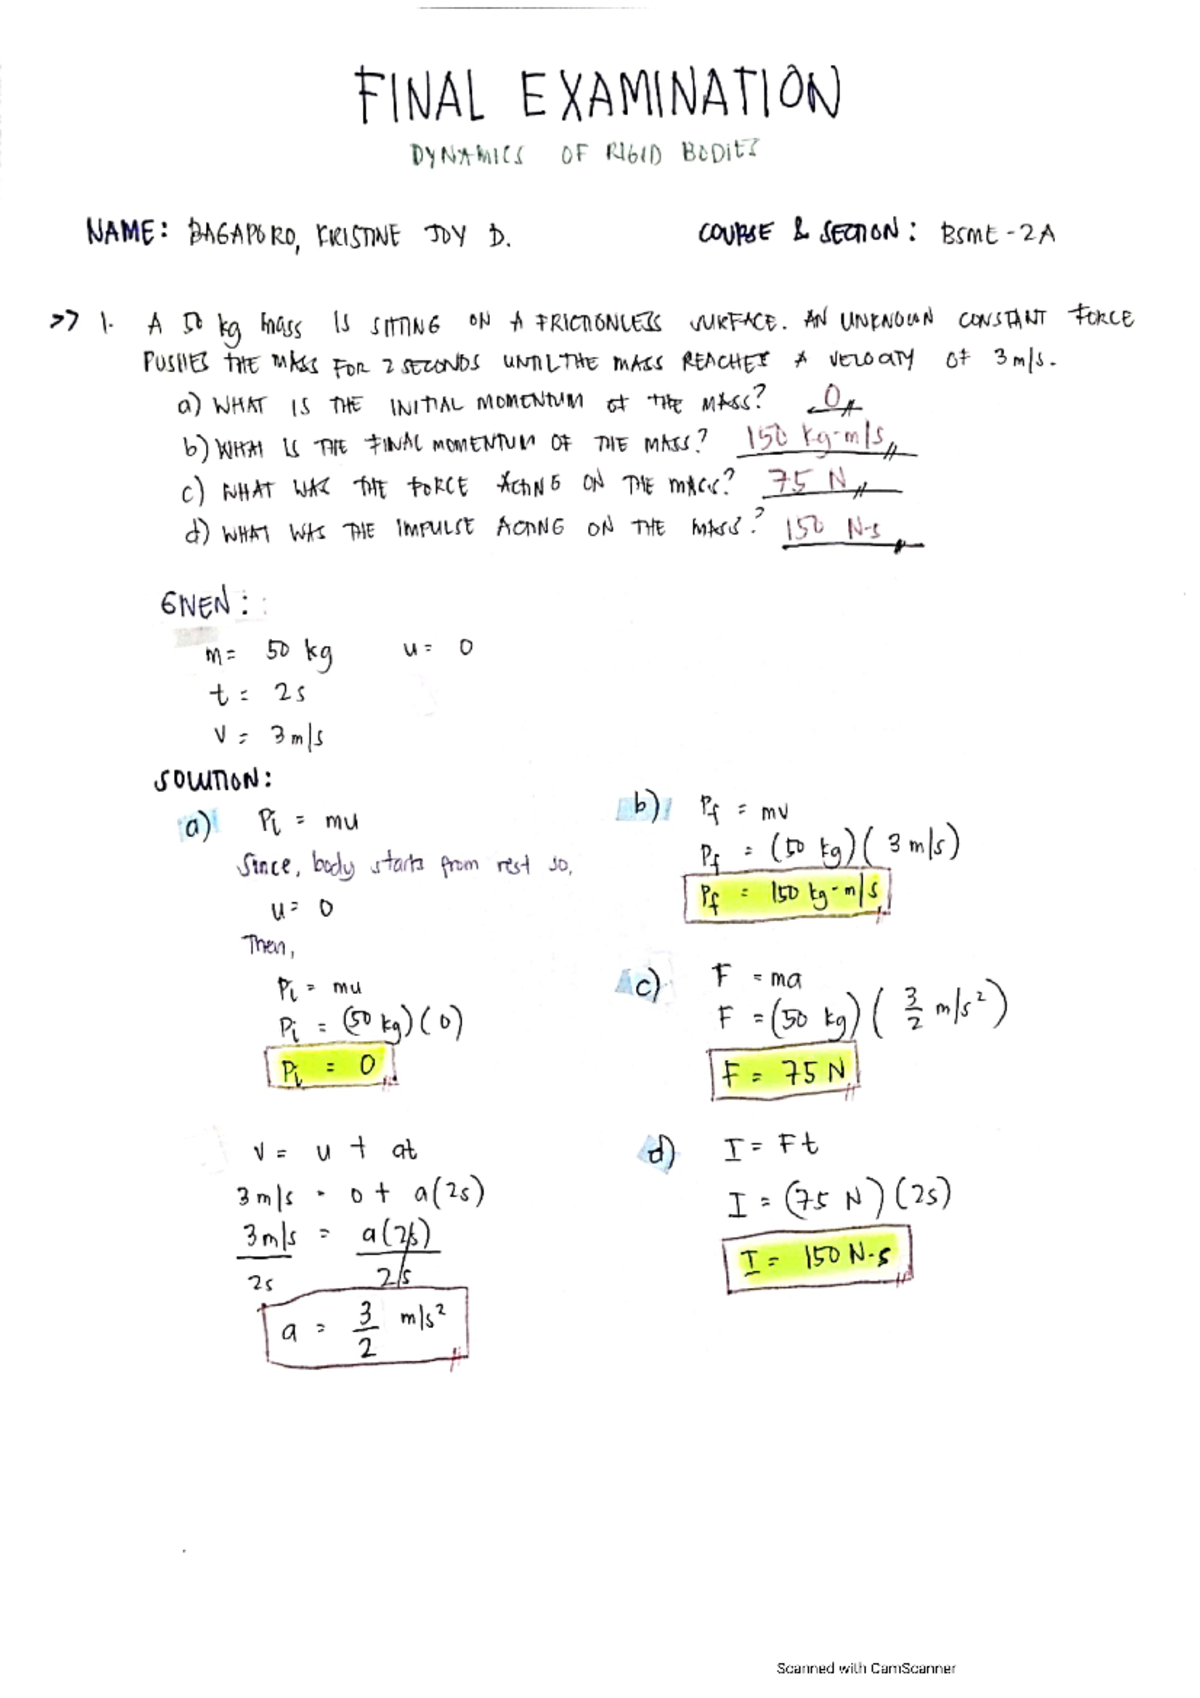 FINAL EXAMINATION
DYNAMICS OF RIGID BODIES
NAME: BAGAPORO, KRISTINE JOY D. COURSE & SECTION: BSME-2A
>> 1. A 50 kg mass IS SITTING ON A FRICTIONLESS SURFACE. AN UNKNOWN CONSTANT FORCE
PUSHES THE MASS FOR 2 SECONDS UNTIL THE MASS REACHES A VELOCITY OF 3 m/s.
a) WHAT IS THE INITIAL MOMENTUM OF THE MASS? 0
b) WHAT IS THE FINAL MOMENTUM OF THE MASS? 150 kg-m/s
c) WHAT WAS THE FORCE ACTING ON THE MASS? 75 N
d) WHAT WAS THE IMPULSE ACTING ON THE MASS? 150 N-s
GIVEN:
m = 50 kg u = 0
t = 2s
v = 3 m/s
SOLUTION:
a) Pi = mu
Since, body starts from rest so,
u = 0
Then,
Pi = mu
Pi = (50 kg)(0)
Pi = 0
v = u + at
3 m/s = 0 + a(2s)
3 m/s = a(2s)
2s 2s
a = 3/2 m/s²
b) Pf = mv
Pf = (50 kg)(3 m/s)
Pf = 150 kg-m/s
c) F = ma
F = (50 kg)(3/2 m/s²)
F = 75 N
d) I = Ft
I = (75 N)(2s)
I = 150 N-s
Scanned with CamScanner